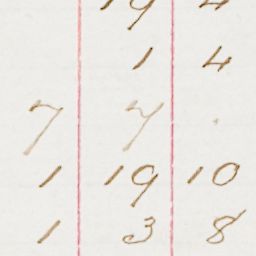 19 4
1 4
7 7 .
1 19 10
1 3 8